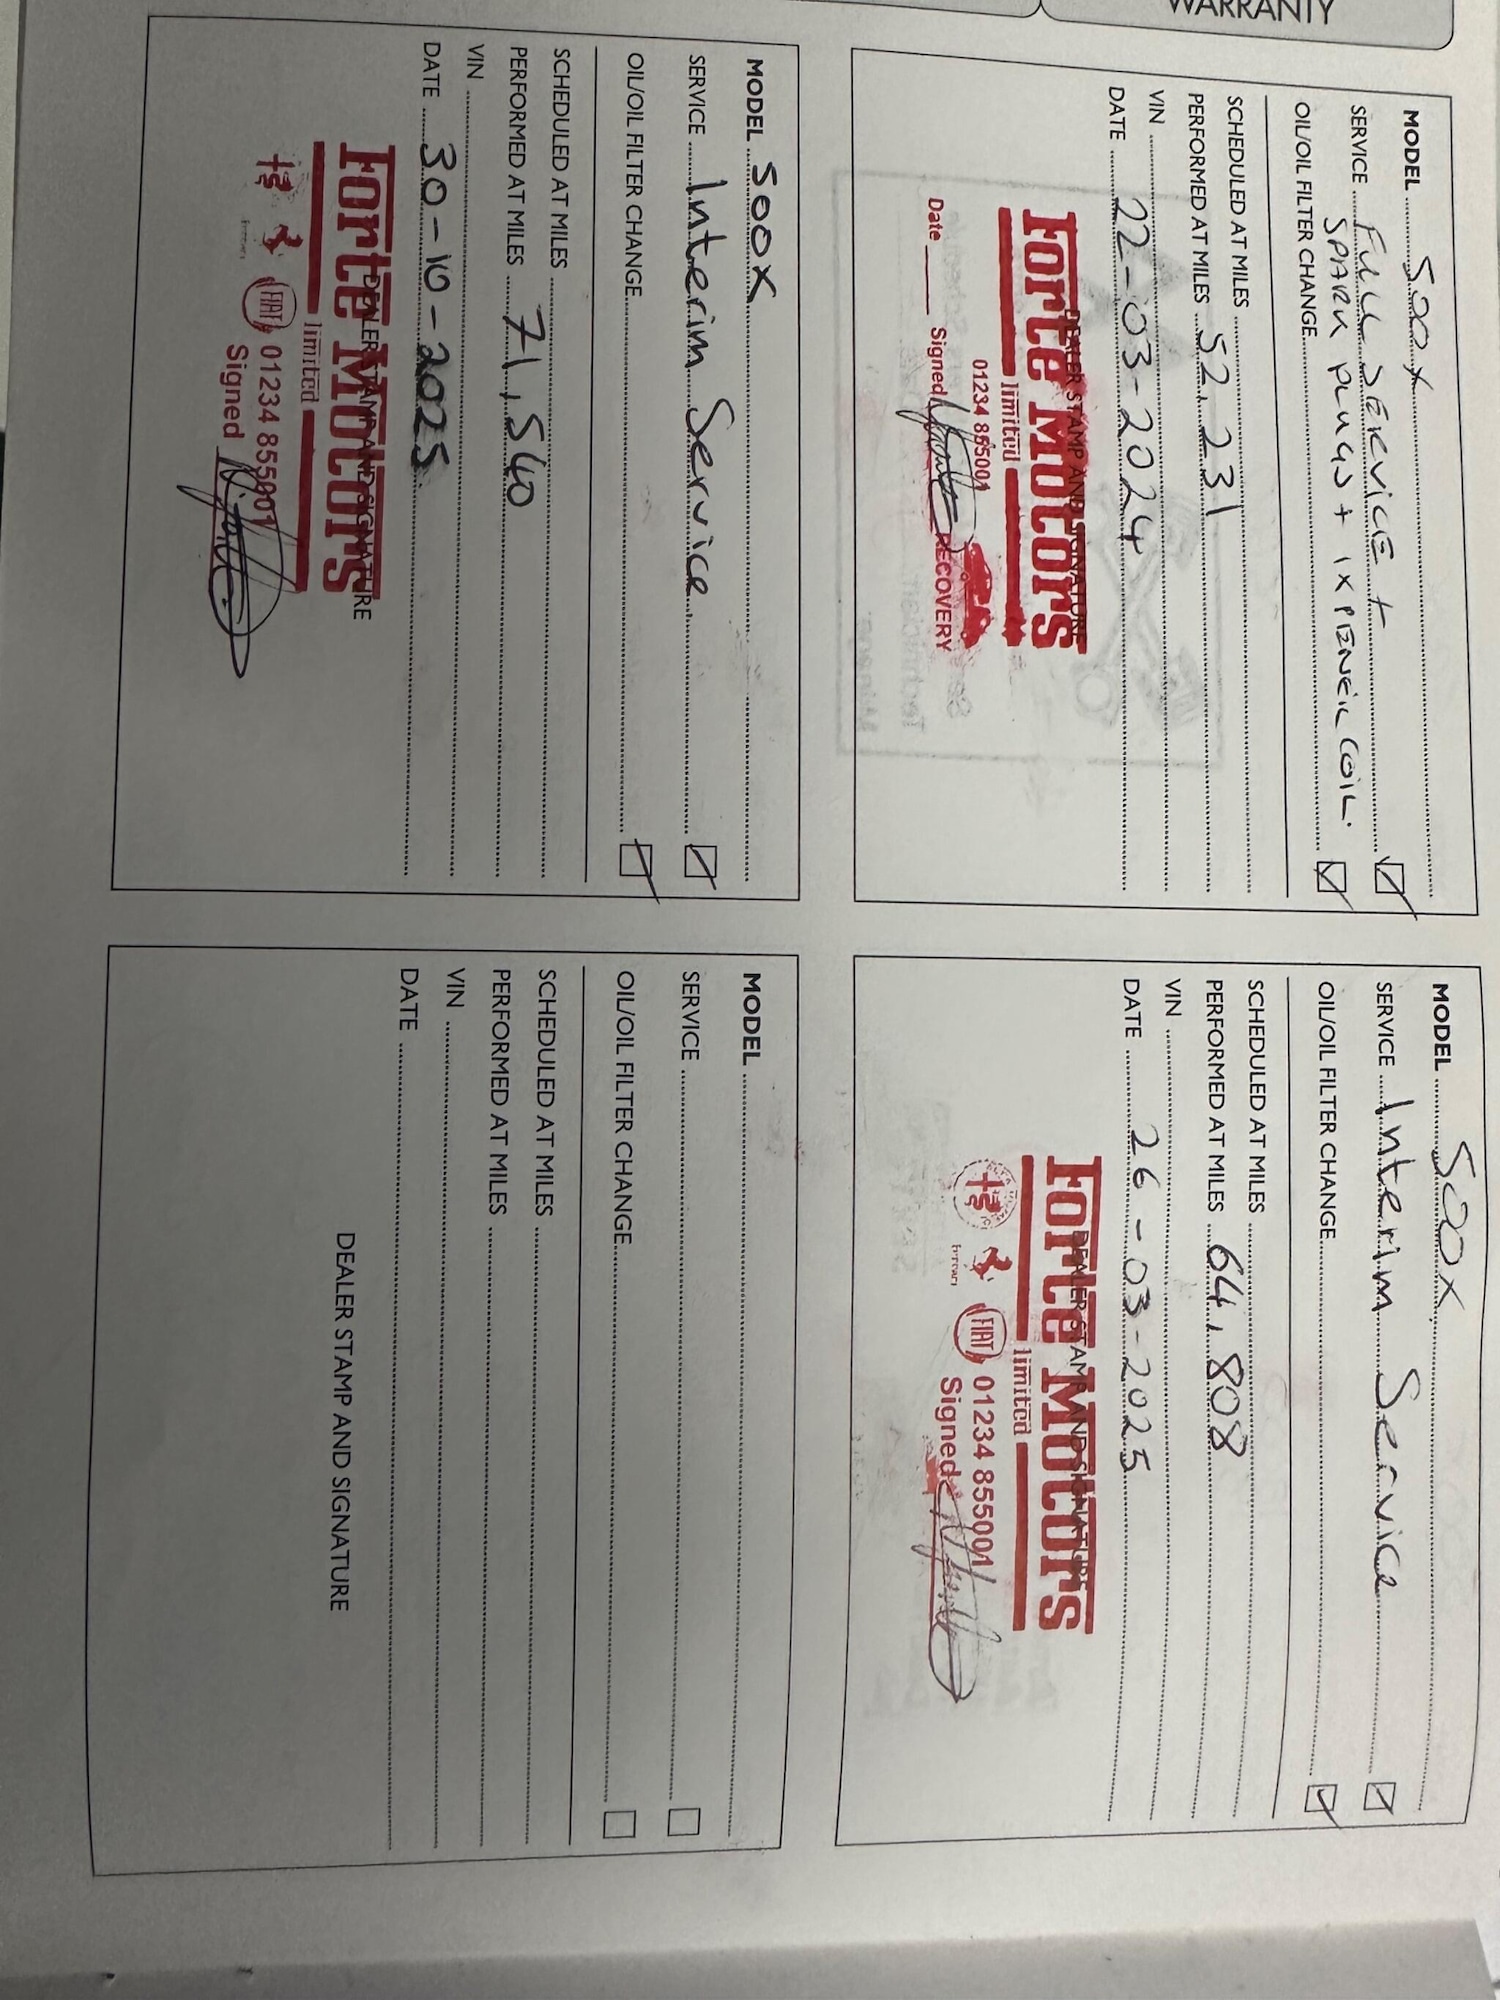 WARRANTY
MODEL 500X
SERVICE FULL SERVICE +
SPARK PLUGS + 1X PENCIL COIL.
OIL/OIL FILTER CHANGE
SCHEDULED AT MILES
PERFORMED AT MILES 52,231
VIN
DATE 22-03-2024
DEALER STAMP AND SIGNATURE
Forte Motors
limited
01234 855001
Date Signed RECOVERY
MODEL 500X
SERVICE Interim Service
OIL/OIL FILTER CHANGE
SCHEDULED AT MILES
PERFORMED AT MILES 64,808
VIN
DATE 26-03-2025
DEALER STAMP AND SIGNATURE
Forte Motors
limited
Ferrari FIAT 01234 855001
Signed
MODEL 500X
SERVICE Interim Service
OIL/OIL FILTER CHANGE
SCHEDULED AT MILES
PERFORMED AT MILES 71,540
VIN
DATE 30-10-2025
DEALER STAMP AND SIGNATURE
Forte Motors
limited
Ferrari FIAT 01234 855001
Signed
MODEL
SERVICE
OIL/OIL FILTER CHANGE
SCHEDULED AT MILES
PERFORMED AT MILES
VIN
DATE
DEALER STAMP AND SIGNATURE